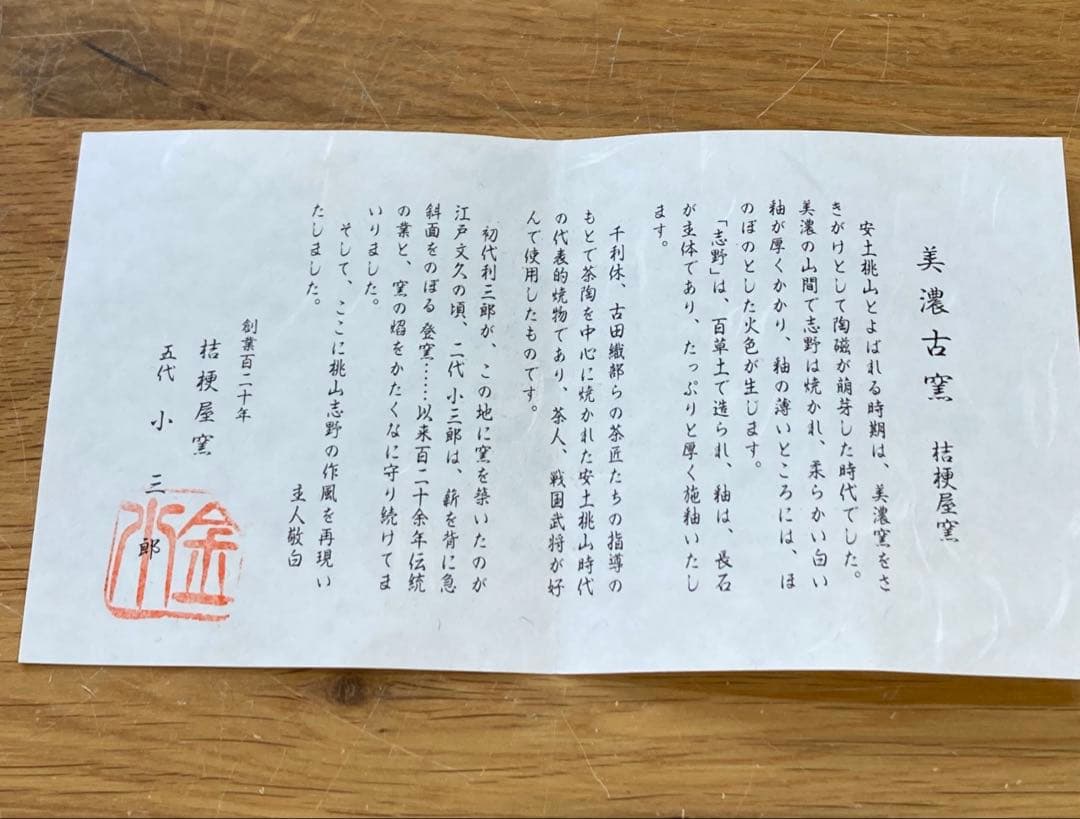 美濃古窯 桔梗屋窯
安土桃山とよばれる時期は、美濃窯をさ
きがけとして陶磁が萠芽した時代でした。
美濃の山間で志野は焼かれ、柔らかい白い
釉が厚くかかり、釉の薄いところには、ほ
のぼのとした火色が生じます。
「志野」は、百草土で造られ、釉は、長石
が主体であり、たっぷりと厚く施釉いたし
ます。
千利休、古田織部らの茶匠たちの指導の
もとで茶陶を中心に焼かれた安土桃山時代
の代表的焼物であり、茶人、戦国武将が好
んで使用したものです。
初代利三郎が、この地に窯を築いたのが
江戸文久の頃、二代 小三郎は、薪を背に急
斜面をのぼる 登窯……以来百二十余年伝統
の業と、窯の焰をかたくなに守り続けてま
いりました。
そして、ここに桃山志野の作風を再現い
たしました。
主人敬白
創業百二十年
桔梗屋窯
五代 小三郎